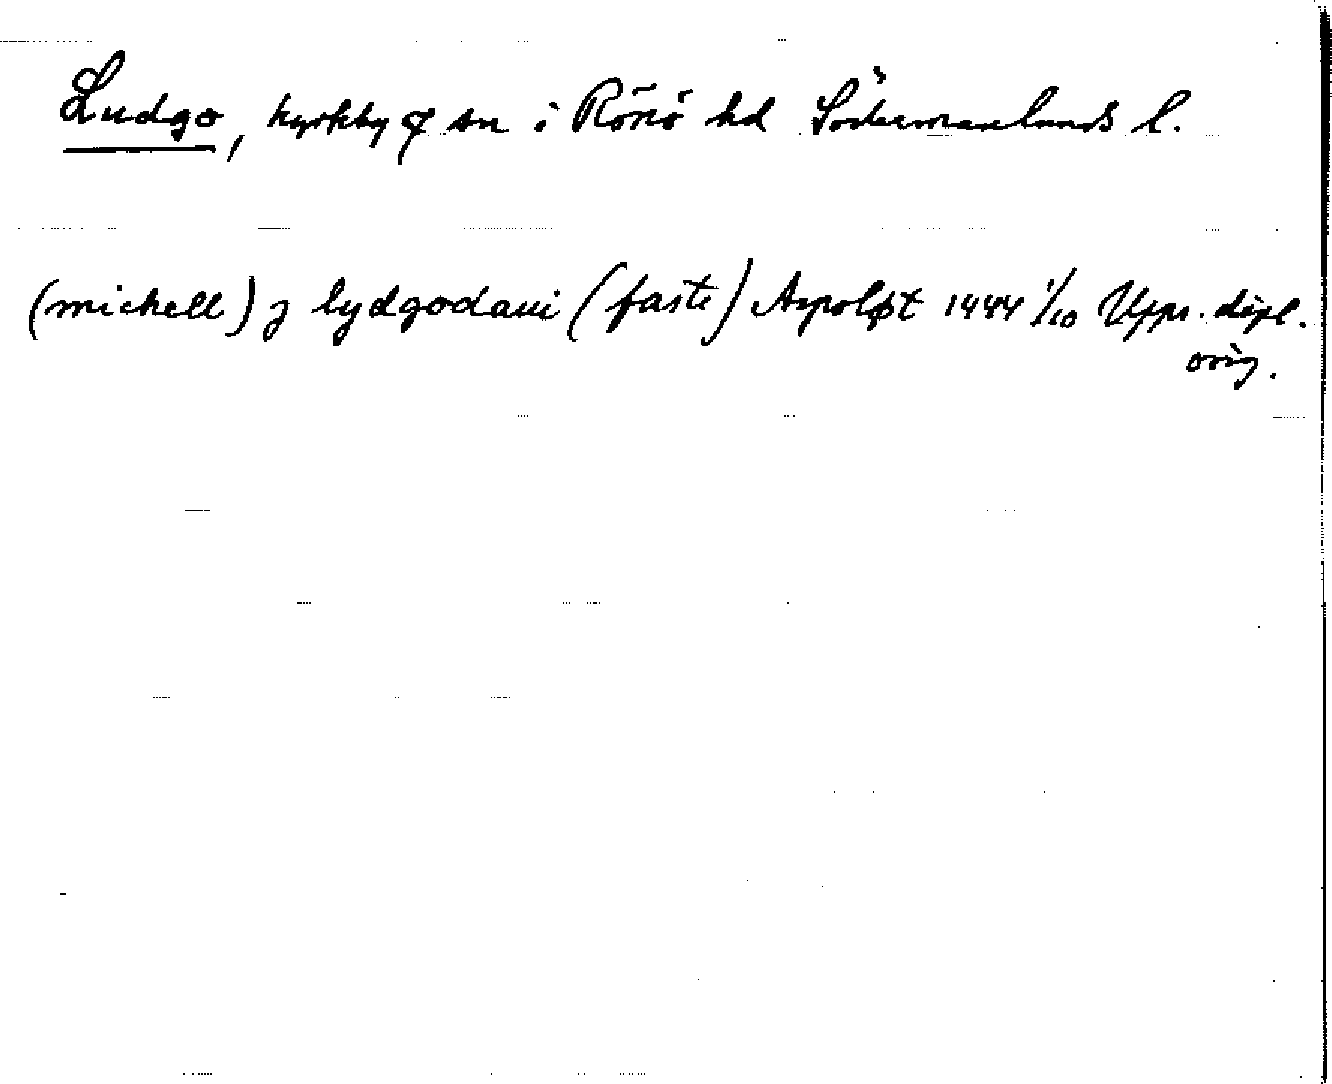 Ludgo, kyrkby o sn i Rönö hd Södermanlands l.
(michell) j lydgodaui (faste) Aspoløt 1444 1/10 Upps. dipl.
orig.